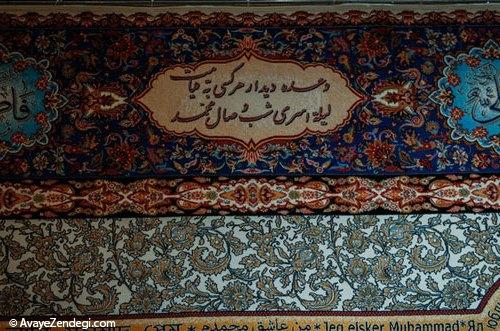 وعده دیدار هرکسی به قیامت
لیله اسری شب وصال محمد
من عاشق محمدم * Jeg elsker Muhammad * Я
© AvayeZendegi.com